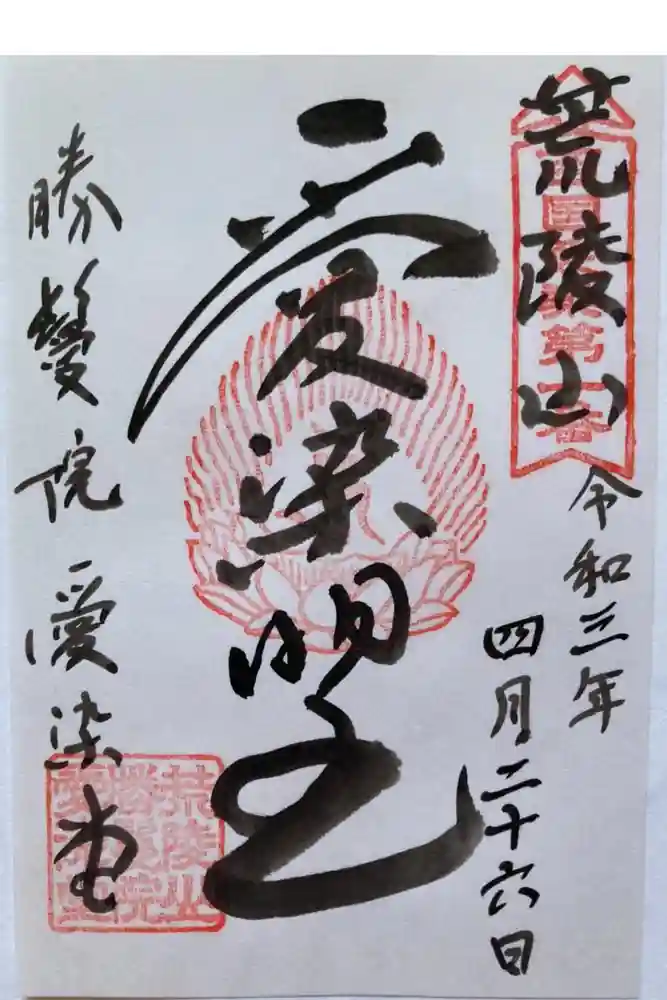 荒陵山
令和三年
四月二十六日
愛染明王
勝鬘院愛染堂
荒陵山
勝鬘院
愛染堂